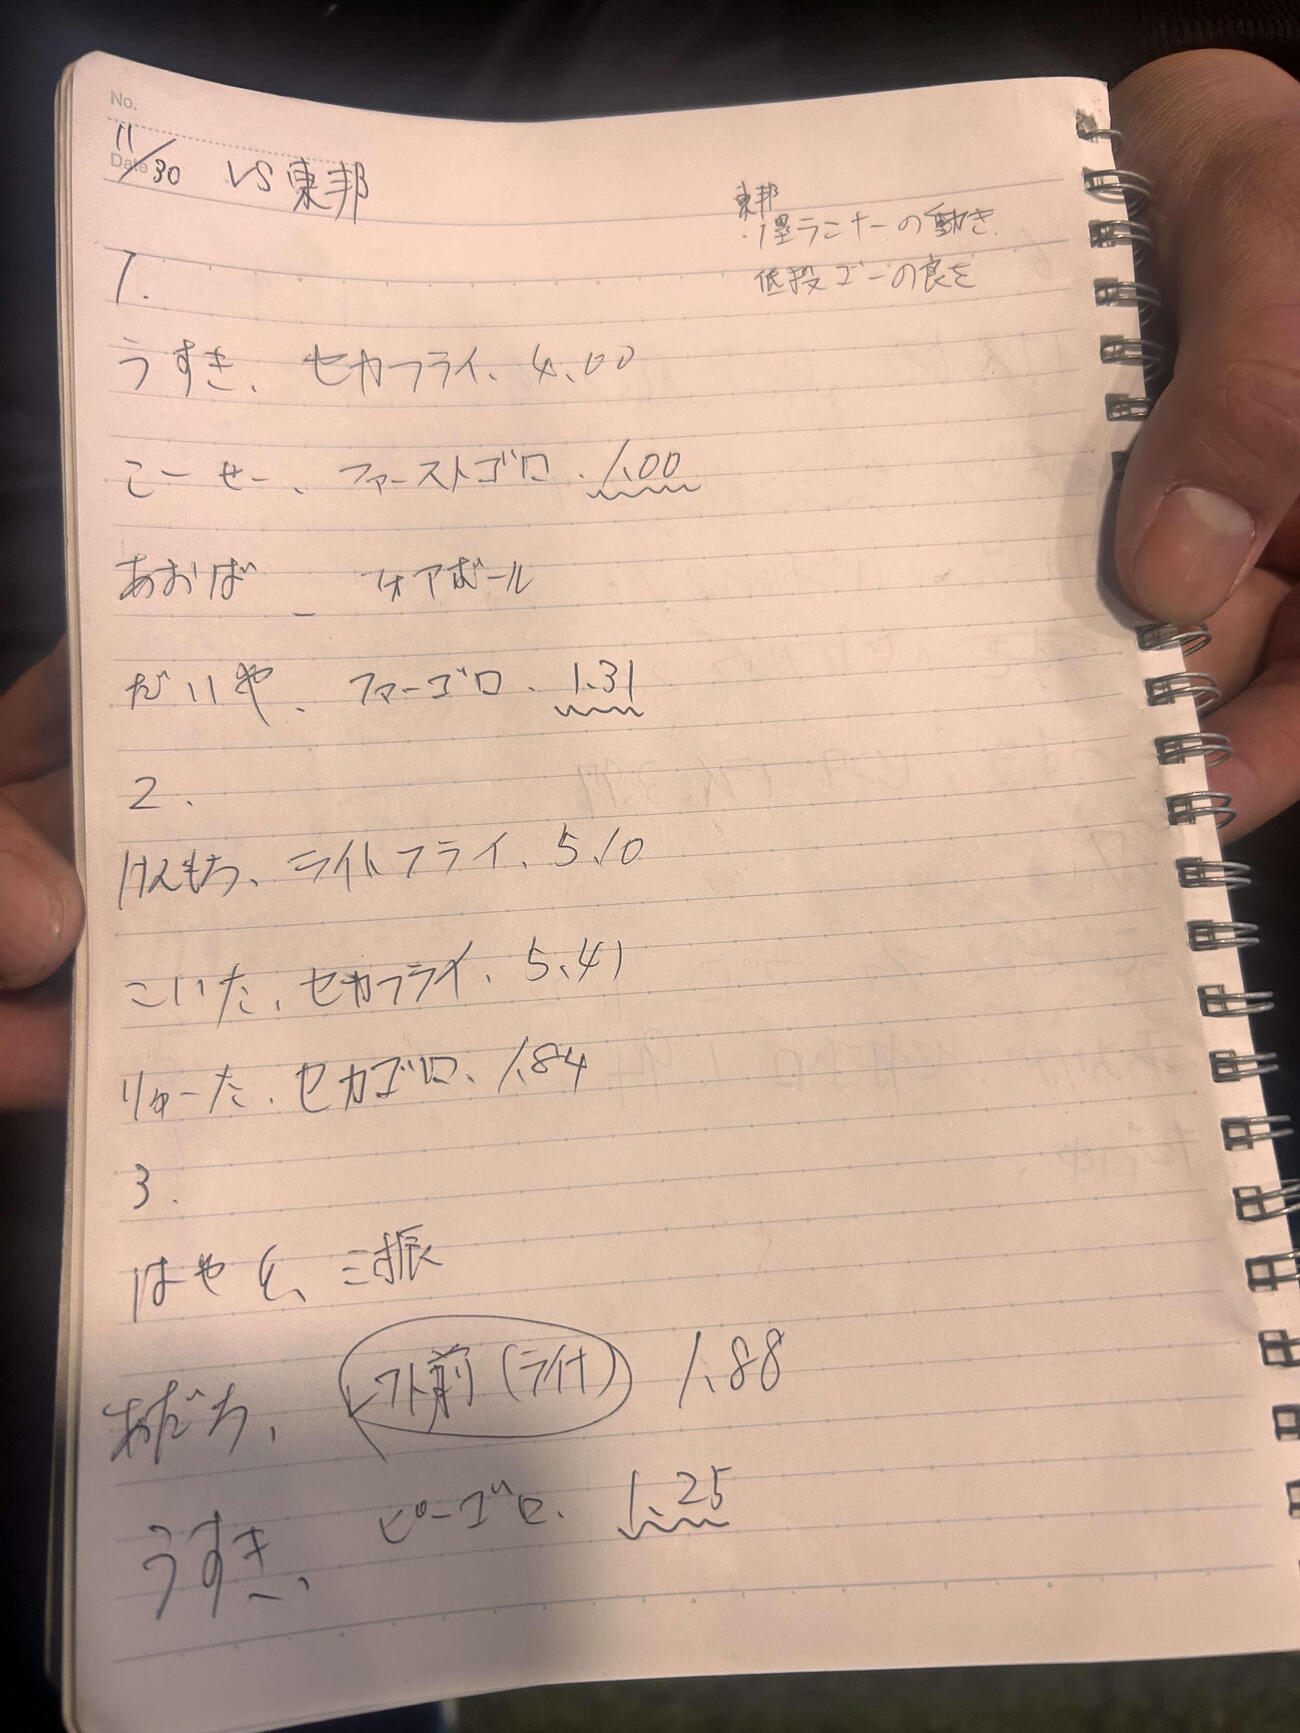 No.
Date
11/30 VS 東邦
東邦
・1塁ランナーの動き
低投ゴーの良さ
1.
うすき、セカフライ、4.00
こーせー、ファーストゴロ、1.00
あおば、フォアボール
だいや、ファーゴロ、1.31
2.
けんもち、ライトフライ、5.10
こいた、セカフライ、5.41
りゅーた、セカゴロ、1.84
3.
はやと、三振
あだち、レフト前(ライナ) 1.88
うすき、ピーゴロ、1.25